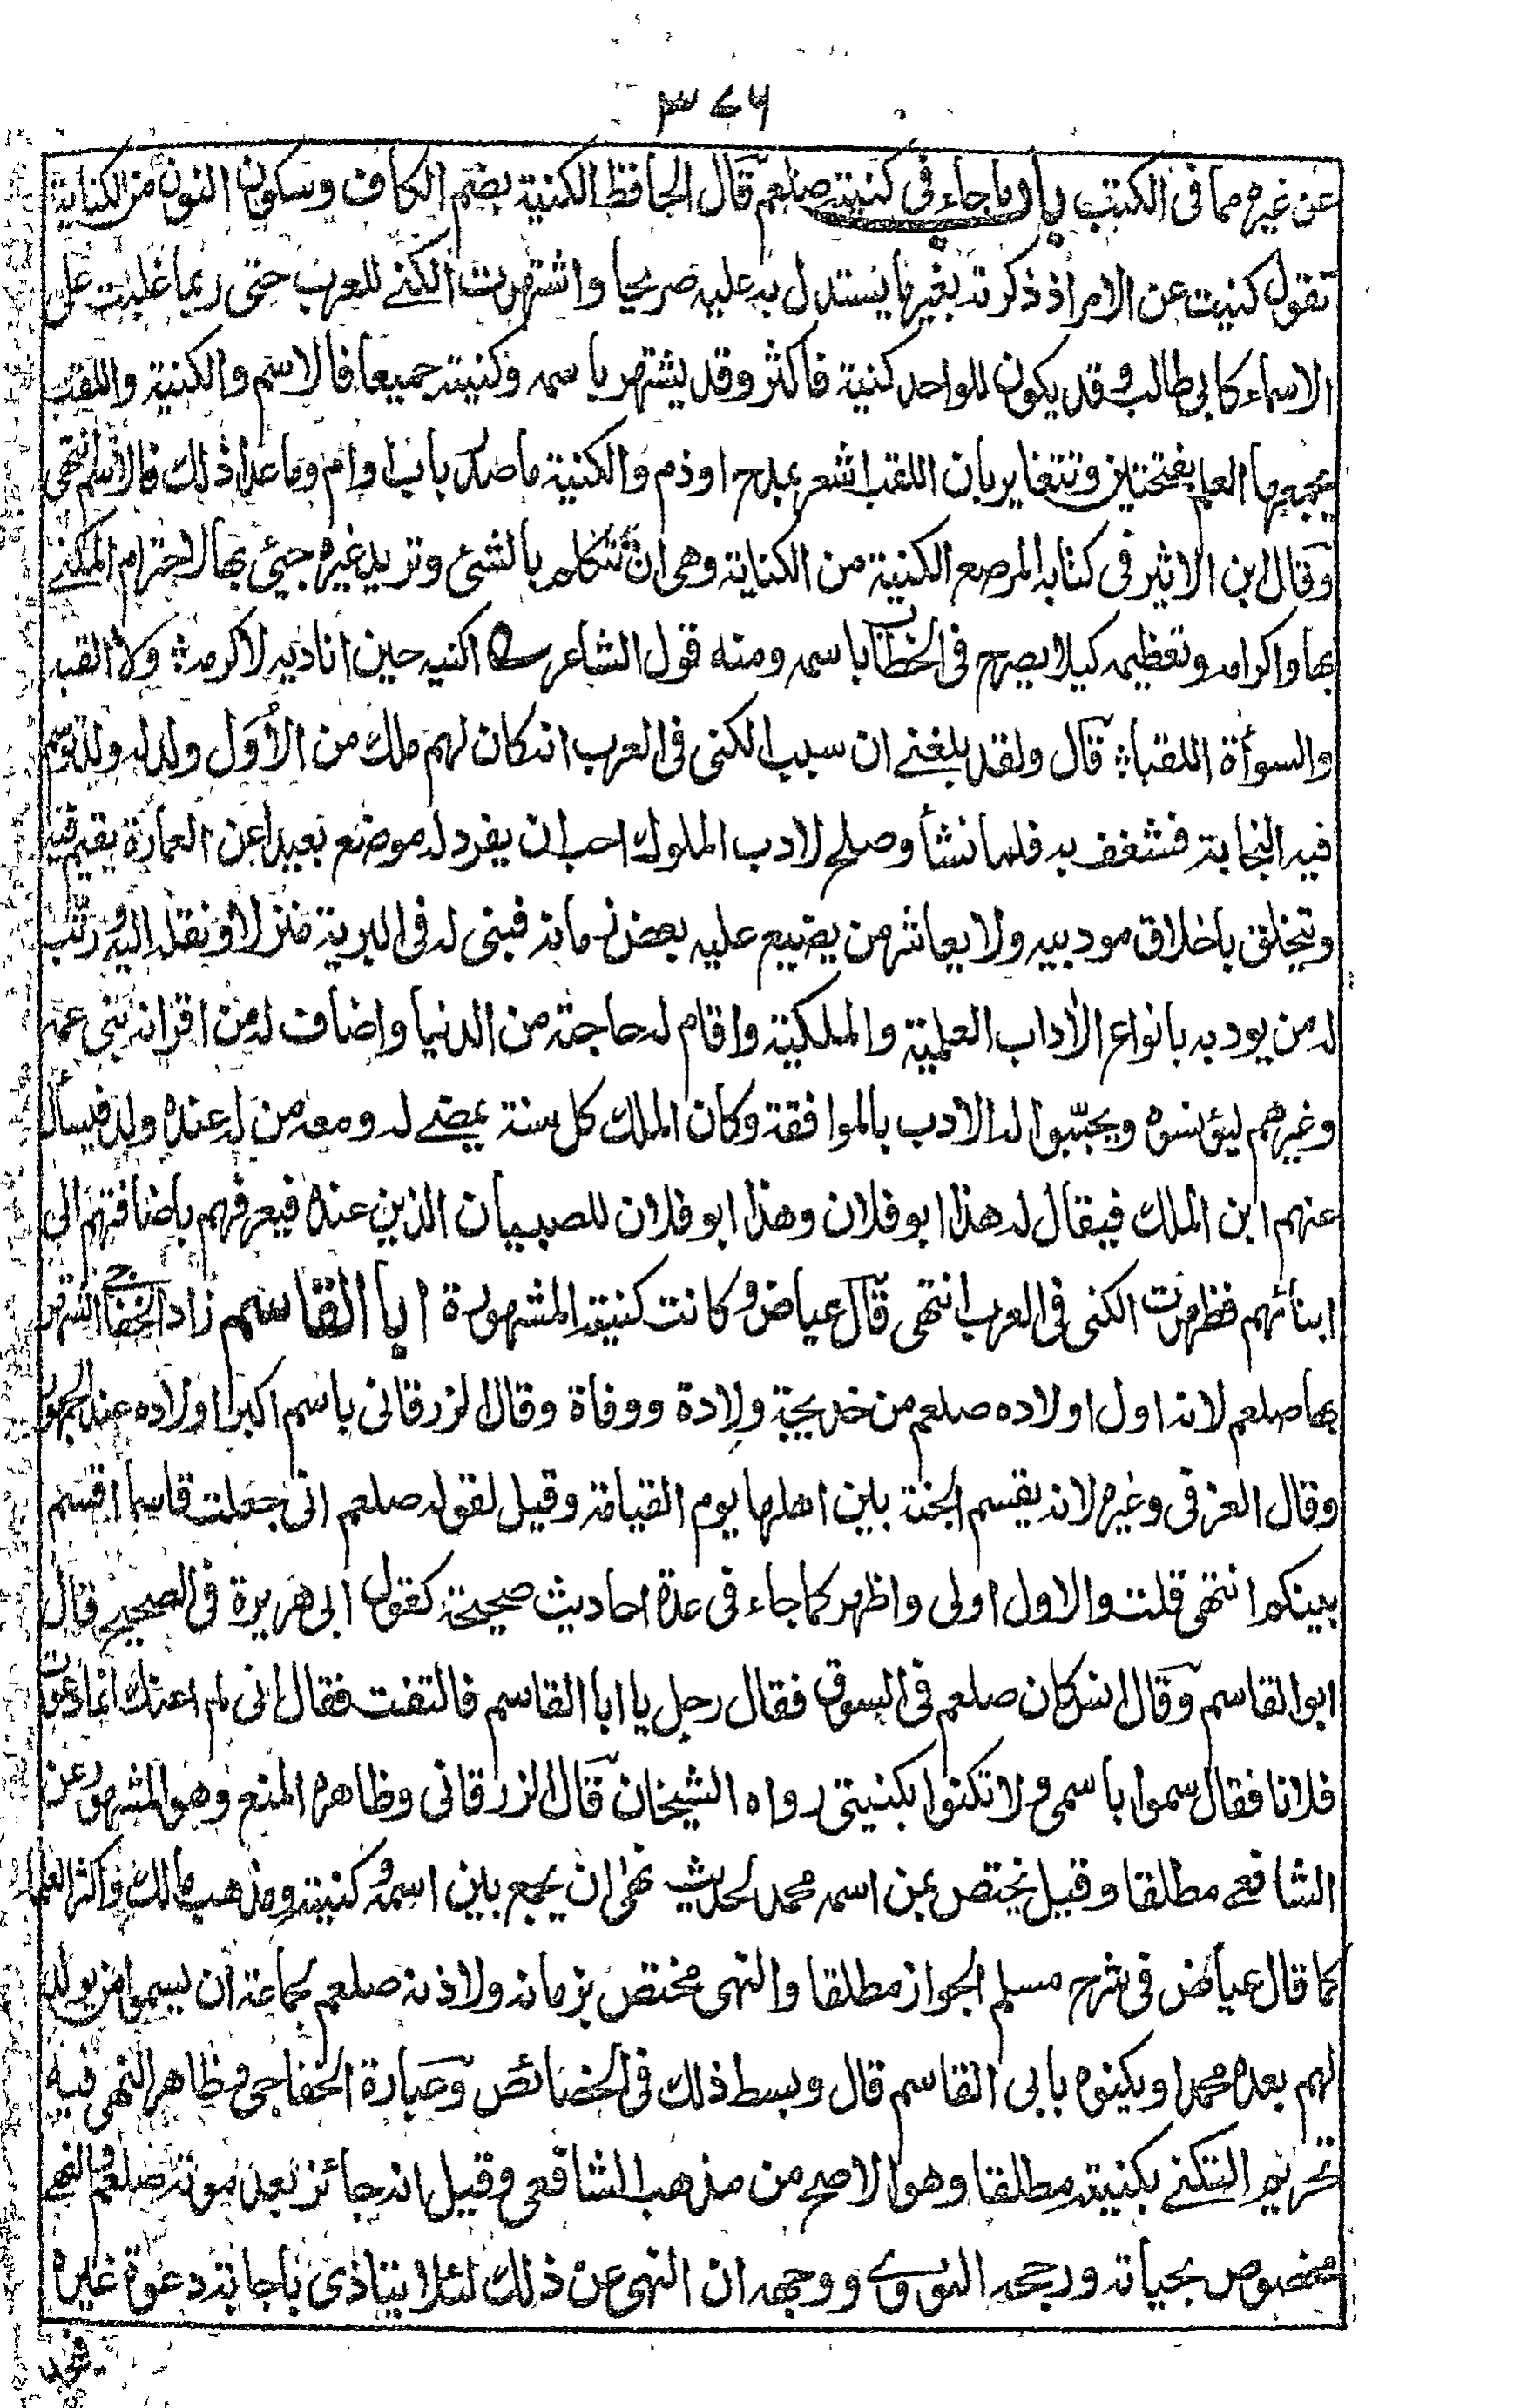 ٣٧٦
عن غيره مما فى الكتب باب ما جاء فى كنيته صلعم قال الحافظ الكنية بضم الكاف وسكون النون من الكناية
تقول كنيت عن الامر اذ ذكرته بغير ما يستدل به عليه صريحا واشتهرت الكنے للعرب حتى ربما غلبت على
الاسماء كابى طالب وقد يكون للواحد كنية فاكثر وقد يشتهر باسمه وكنيته جميعا فالاسم والكنية واللقب
يجمعها العلم بفتحتين وتتغاير بان اللقب اشعر بمدح او ذم والكنية ما صدر باب او ام وما عدا ذلك فالاسم انتهى
وقال ابن الاثير فى كتابه المرصع الكنية من الكناية وهى ان تتكلم بالشئ وتريد غيره جيئ بها لاحترام المكنے
بها واكرامه وتعظيمه كيلا يصرح فى الخطاب باسمه ومنه قول الشاعر اكنيه حين اناديه لاكرمه ولا القبه
والسوأة اللقبا قال ولقد بلغنے ان سبب الكنى فى العرب انه كان لهم ملك من الأول ولد له ولد توسم
فيه النجابة فشغف به فلما نشأ وصلح لادب الملوك احب ان يفرد له موضع بعيدا عن العمارة يقيم فيه
ويتخلق باخلاق مودبيه ولا يعاشر من يضيع عليه بعض زمانه فبنى له فى البرية منزلا ونقله اليه ورتب
له من يودبه بانواع الاداب العلمية والملكية واقام له حاجته من الدنيا واضاف له من اقرانه بنى عمه
وغيرهم ليؤنسوه ويحببوا له الادب بالموافقة وكان الملك كل سنة يمضے له ومعه من له عنده ولد فيسأل
عنهم ابن الملك فيقال له هذا ابو فلان وهذا ابو فلان للصبيان الذين عنده فيعرفهم باضافتهم الى
ابنائهم فظهرت الكنى فى العرب انتهى قال عياض وكانت كنيته المشهورة ابا القاسم زاد الخفاجے اشتهر
بها صلعم لانه اول اولاده صلعم من خديجة ولادة ووفاة وقال الزرقانى باسم اكبر اولاده عند الجمهور
وقال العزفى وغيره لانه يقسم الجنة بين اهلها يوم القيامة وقيل لقوله صلعم انى جعلت قاسما اقسم
بينكم انتهى قلت والاول اولى واظهر كما جاء فى عدة احاديث صحيحة كقول ابى هريرة فى الصحيح قال
ابو القاسم وقال انس كان صلعم فى السوق فقال رجل يا ابا القاسم فالتفت فقال انى لم اعنك انما دعوت
فلانا فقال سموا باسمى ولا تكنوا بكنيتى رواه الشيخان قال الزرقانى وظاهره المنع وهو المشهور عن
الشافعے مطلقا وقيل يختص بمن اسمه محمد لحديث نهى ان يجمع بين اسمه وكنيته ومذهب مالك واكثر العلماء
كما قال عياض فى شرح مسلم الجواز مطلقا والنهى مختص بزمانه ولاذنه صلعم لجماعة ان يسموا من يولد
لهم بعده محمدا ويكنوه بابى القاسم قال وبسط ذلك فى الخصائص وعبارة الخفاجى وظاهر النهى فيه
تحريم التكنے بكنيته مطلقا وهو الاصح من مذهب الشافعى وقيل انه جائز بعد موته صلعم والنهے
مخصوص بحياته ورجحه النووے ووجهه ان النهى عن ذلك لئلا يتاذى باجابته دعوة غيره